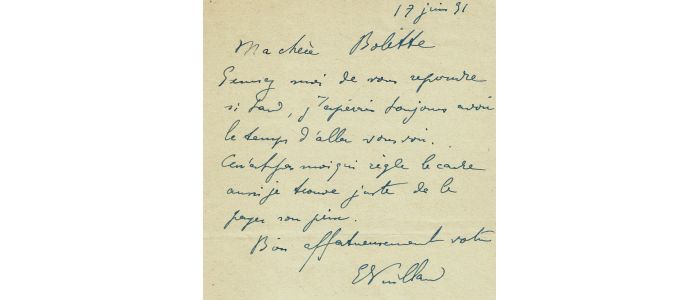 17 juin 31
Ma chère Bolette
Excusez moi de vous répondre
si tard, j'espérais toujours avoir
le temps d'aller vous voir.
Ce n'est pas moi qui règle le cadre
aussi je trouve juste de le
payer son prix.
Bien affectueusement votre
EVuillard